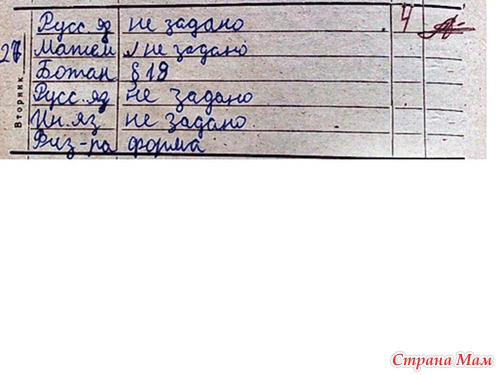 Русс яз не задано 4
27 Матем не задано
Ботан § 19
Русс. яз не задано
Ин. яз не задано
Физ-ра форма
Вторник
Страна Мам